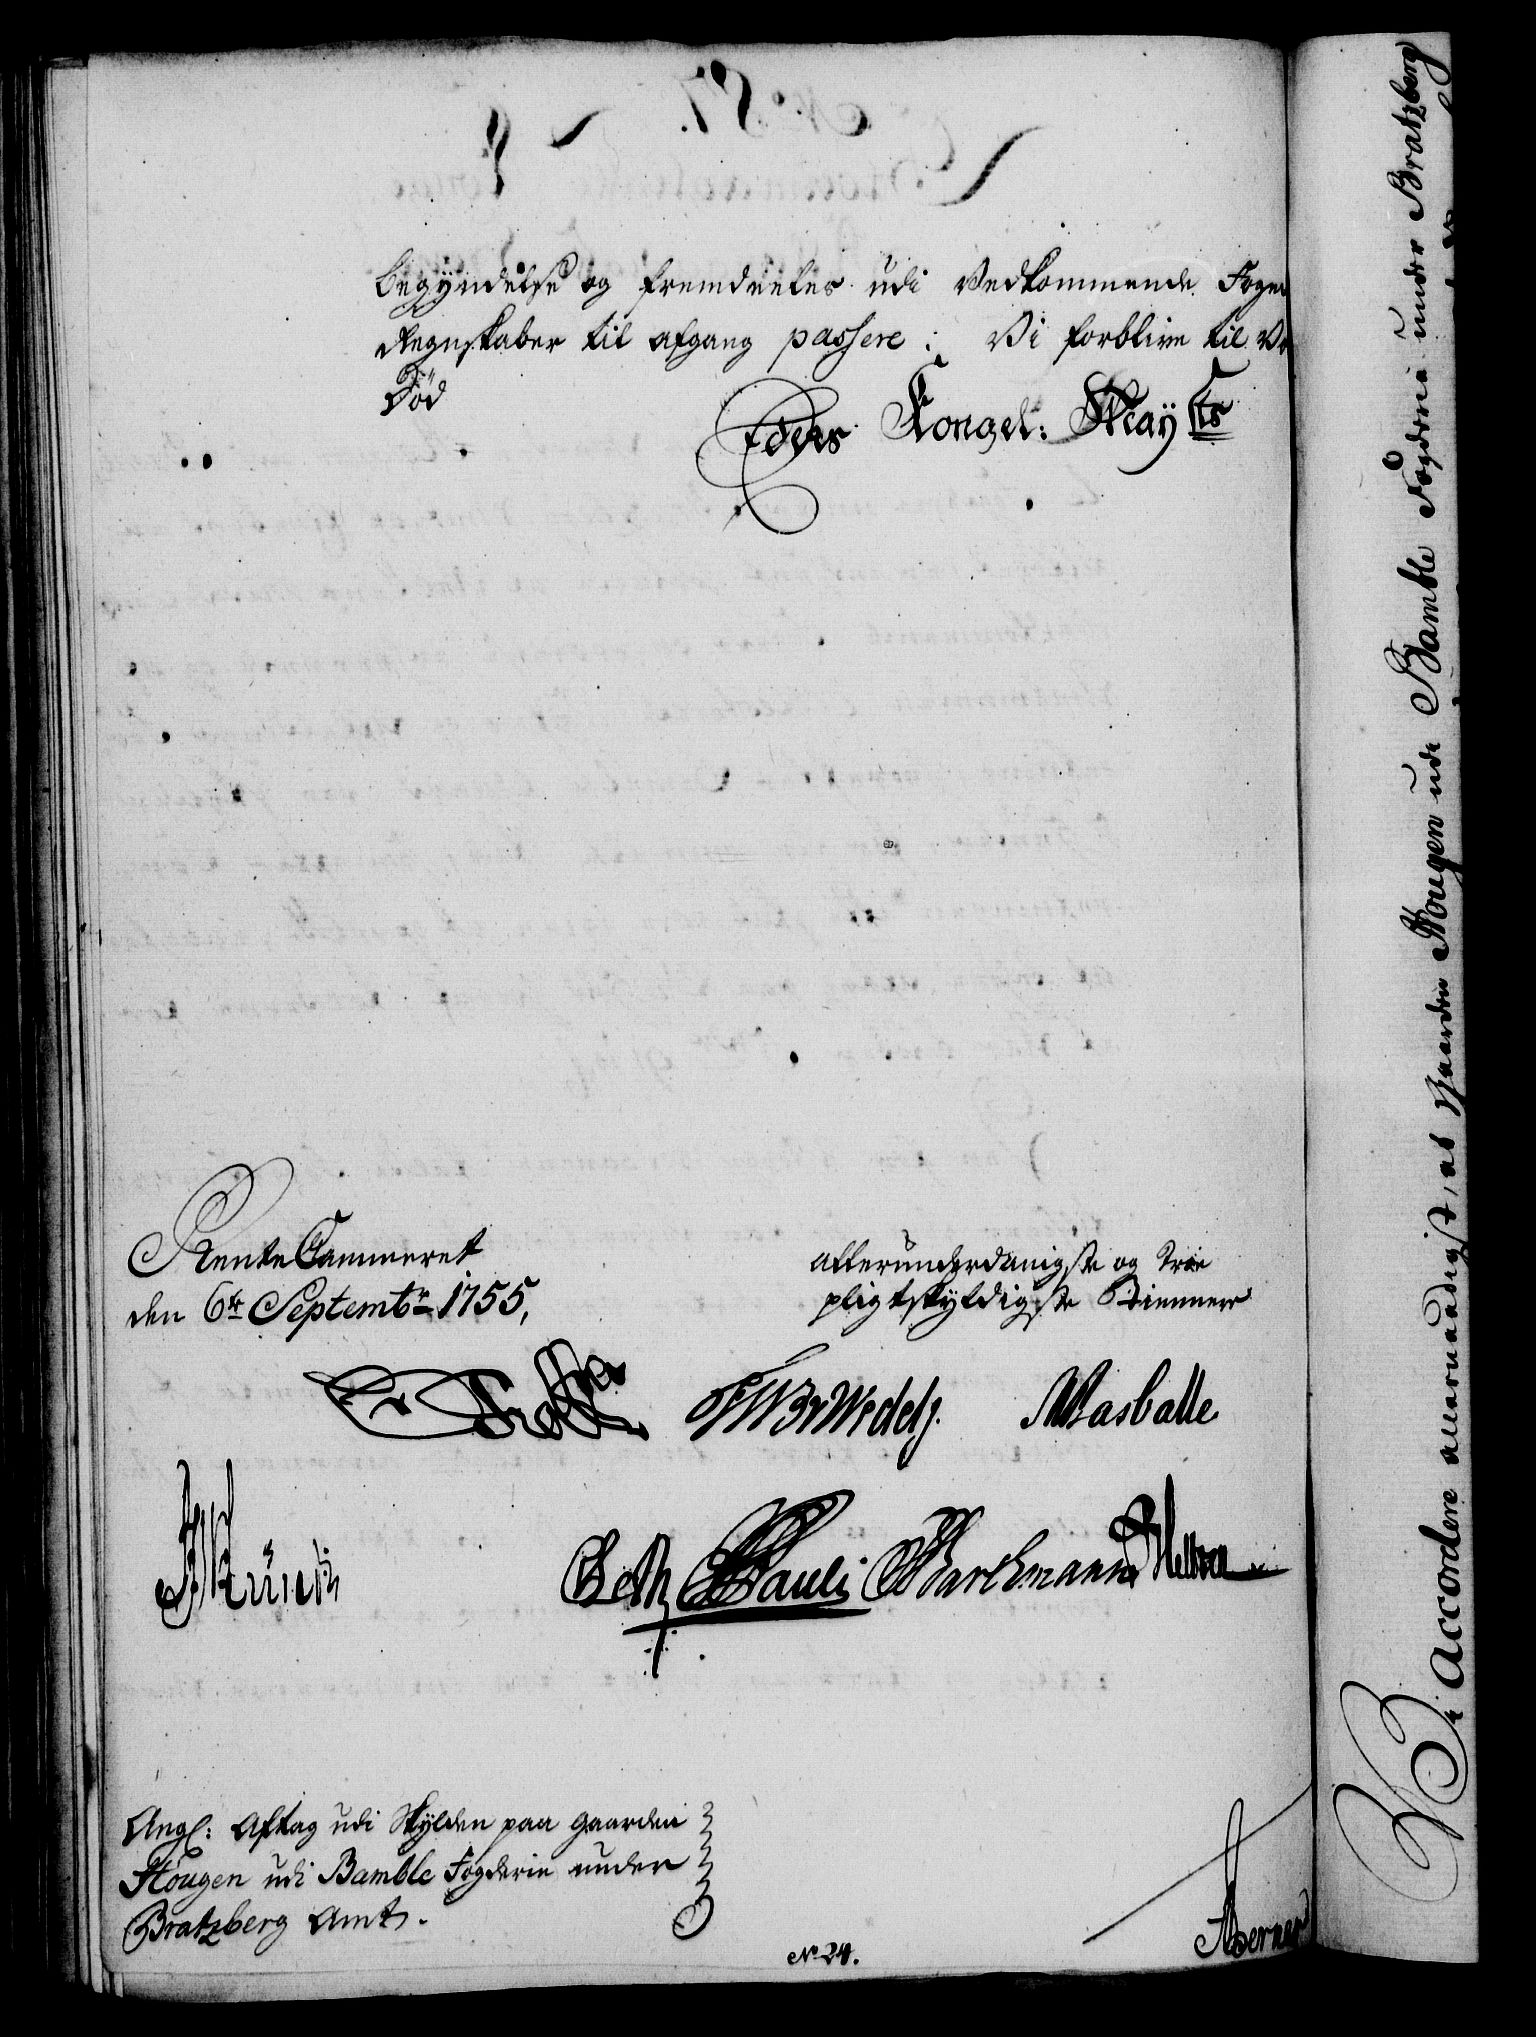 begyndelse og fremdeeles udi Vedkommende Foged
Regnskaber til afgang passere; Vi forblive til Vor
Död
Eders Kongel: May ts
RenteCammeret
den 6te Septembr 1755,
allerunderdanigste og troe
pligtskyldigste Tiennere
FWvWedelj. Masballe
Pauli Barchmann
Angl: Aftag udi Skylden paa Gaarden
Hougen udi Bamble Fogderie under
Bratzberg Amt.
No 24.
Berner
Vi Accordere allernaadigst, at Gaarden Hougen udi Bamble Fogderie under Bratzberg